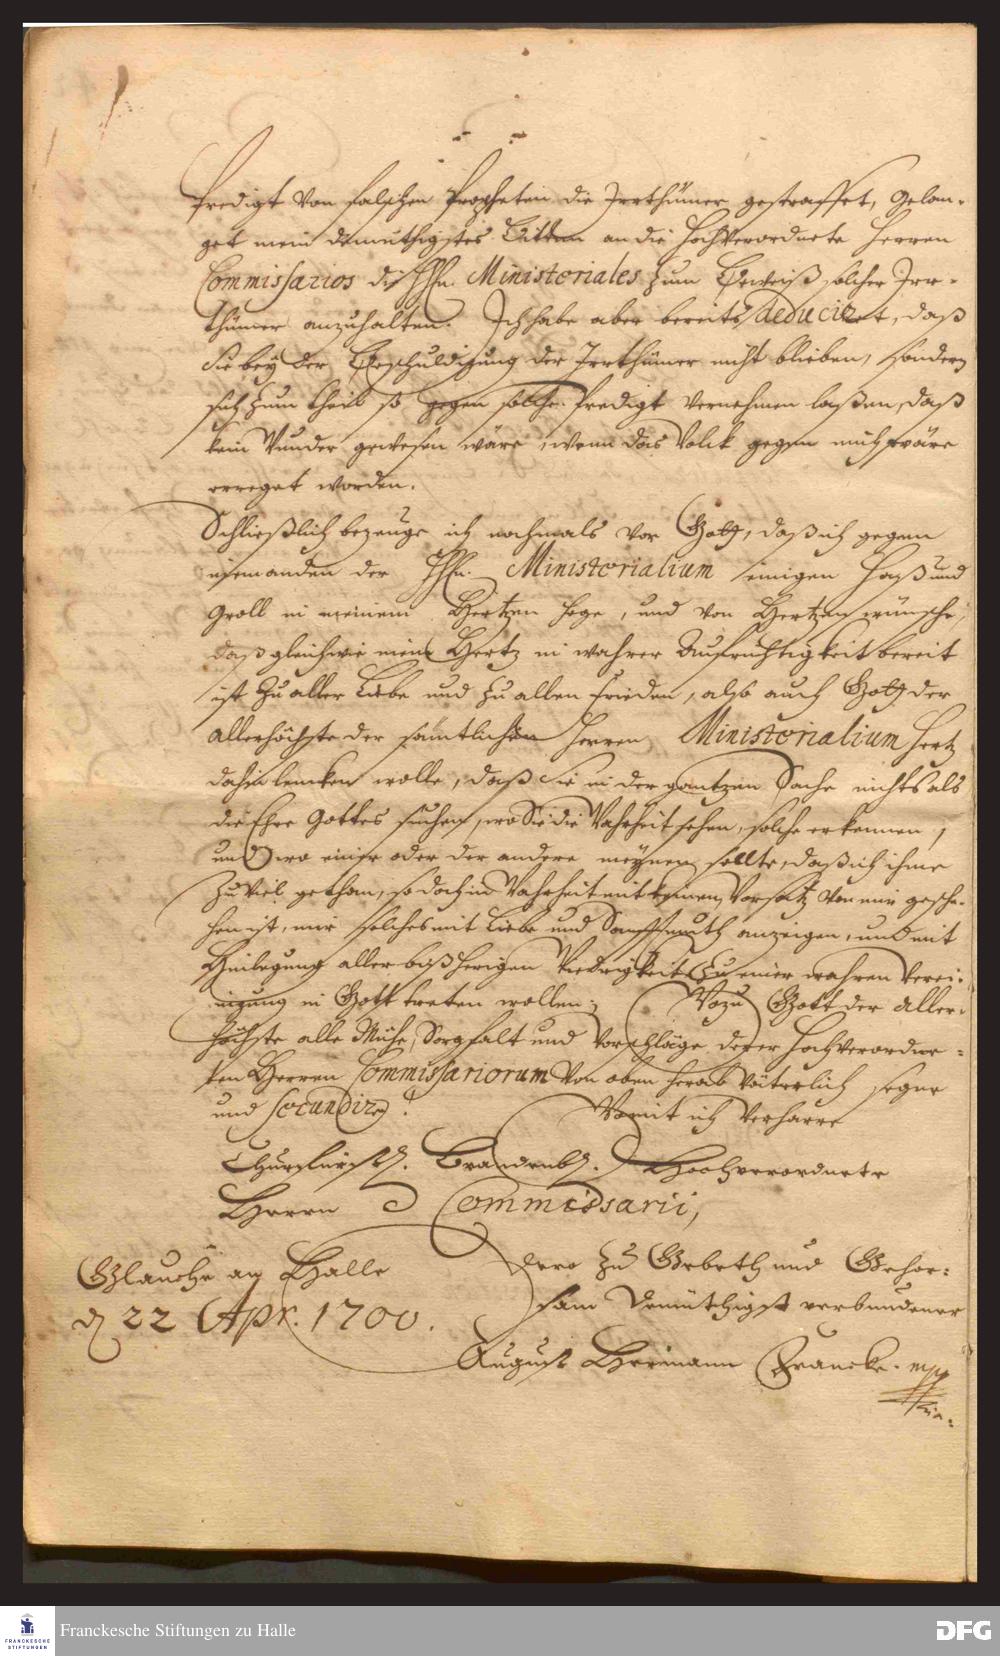 Predigt von falschen Propheten die Irrthümer gestraffet, Gelan-
get mein demüthigstes Bitten an die Hochverordnete Herren
Commissarios die HHn. Ministeriales zum Beweiß solcher Irr-
thümer anzuhalten. Ich habe aber bereits deduciret, daß
Sie bey der Beschuldigung der Irrthümer nicht blieben, sondern
sich zum theil so gegen solche Predigt vernehmen laßen, daß
kein Wunder gewesen wäre, wenn das Volck gegen mich wäre
erreget worden.
Schließlich bezeuge ich nochmals vor Gott, daß ich gegen
niemanden der HHn. Ministerialium einigen Haß und
Groll in meinem Hertzen hege, und von Hertzen wünsche,
daß gleichwie mein Hertz in wahrer Aufrichtigkeit bereit
ist zu aller Liebe und zu allen Frieden, also auch Gott der
Allerhöchste der sämtlichen Herren Ministerialium Hertz
dahin lencken wolle, daß Sie in der gantzen Sache nichts als
die Ehre Gottes suchen, wo Sie die Wahrheit sehen, solche erkennen,
und wo einer oder der andere meynen sollte, daß ich ihme
zu viel gethan, so doch in Wahrheit mit keinem Vorsatz von mir gesche-
hen ist, mir solches mit Liebe und Sanfftmuth anzeigen, und mit
Beilegung aller bißherigen Widrigkeit zu einer wahren Verei-
nigung in Gott treten wollen; Wozu Gott der Aller-
höchste alle Mühe, Sorgfalt und Vorschläge derer Hochverordne-
ten Herren Commissariorum von oben herab väterlich segne
und secundire! Womit ich verharre
Churfürstl. Brandenb. Hochverordnete
Herren Commissarii,
Dero zu Gebeth und Gehor-
Glauche an Halle
sam Demüthigst verbundener
d 22 Apr. 1700.
August Hermann Francke. mpp
Franckesche Stiftungen zu Halle
FRANCKESCHE
STIFTUNGEN
DFG